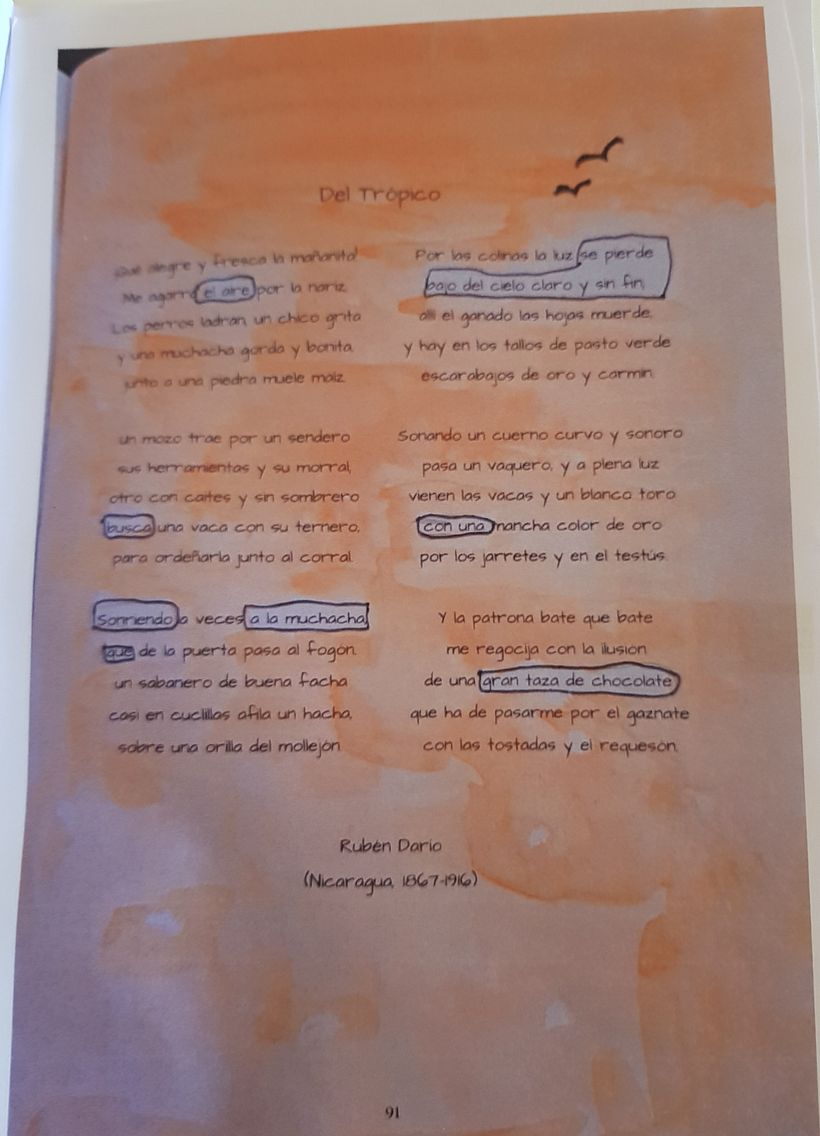 Del Trópico
¡Qué alegre y fresca la mañanita!
Me agarra el aire por la nariz
Los perros ladran, un chico grita
y una muchacha gorda y bonita,
junto a una piedra muele maíz.
un mozo trae por un sendero
sus herramientas y su morral,
otro con caites y sin sombrero
busca una vaca con su ternero,
para ordeñarla junto al corral.
Sonriendo a veces a la muchacha,
que de la puerta pasa al fogón.
un sabanero de buena facha
casi en cuclillas afila un hacha,
sobre una orilla del mollejón
Por las colinas la luz se pierde
bajo del cielo claro y sin fin,
allí el ganado las hojas muerde,
y hay en los tallos de pasto verde
escarabajos de oro y carmín.
Sonando un cuerno curvo y sonoro
pasa un vaquero, y a plena luz
vienen las vacas y un blanco toro
con una mancha color de oro
por los jarretes y en el testús.
Y la patrona bate que bate
me regocija con la ilusión
de una gran taza de chocolate
que ha de pasarme por el gaznate
con las tostadas y el requesón.
Rubén Darío
(Nicaragua, 1867-1916)
91